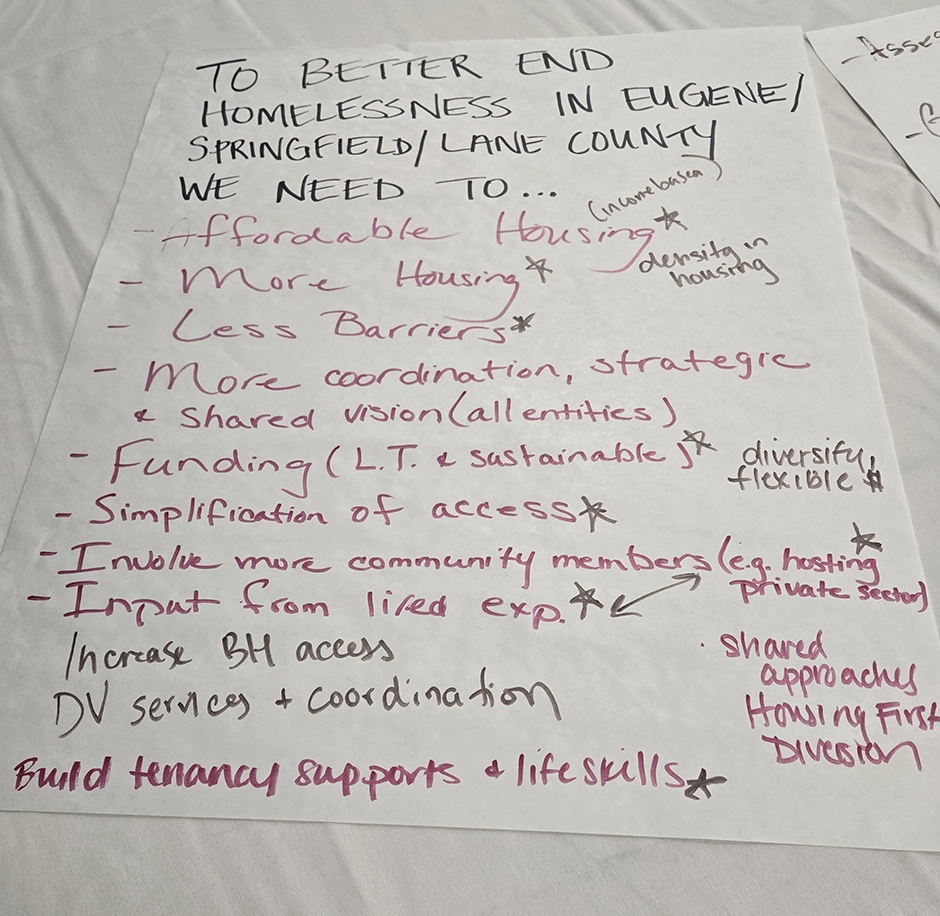 TO BETTER END
HOMELESSNESS IN EUGENE/
SPRINGFIELD/LANE COUNTY
WE NEED TO...
(income based)
- Affordable Housing
density in
housing
- More Housing
- Less Barriers
- More coordination, strategic
& shared vision (all entities)
- Funding (L.T. & sustainable)
diversify,
flexible $
- Simplification of access
- Involve more community members (e.g. hosting
private sector)
- Input from lived exp.
Increase BH access
DV services + coordination
· shared
approaches
Housing First
Diversion
Build tenancy supports & lifeskills